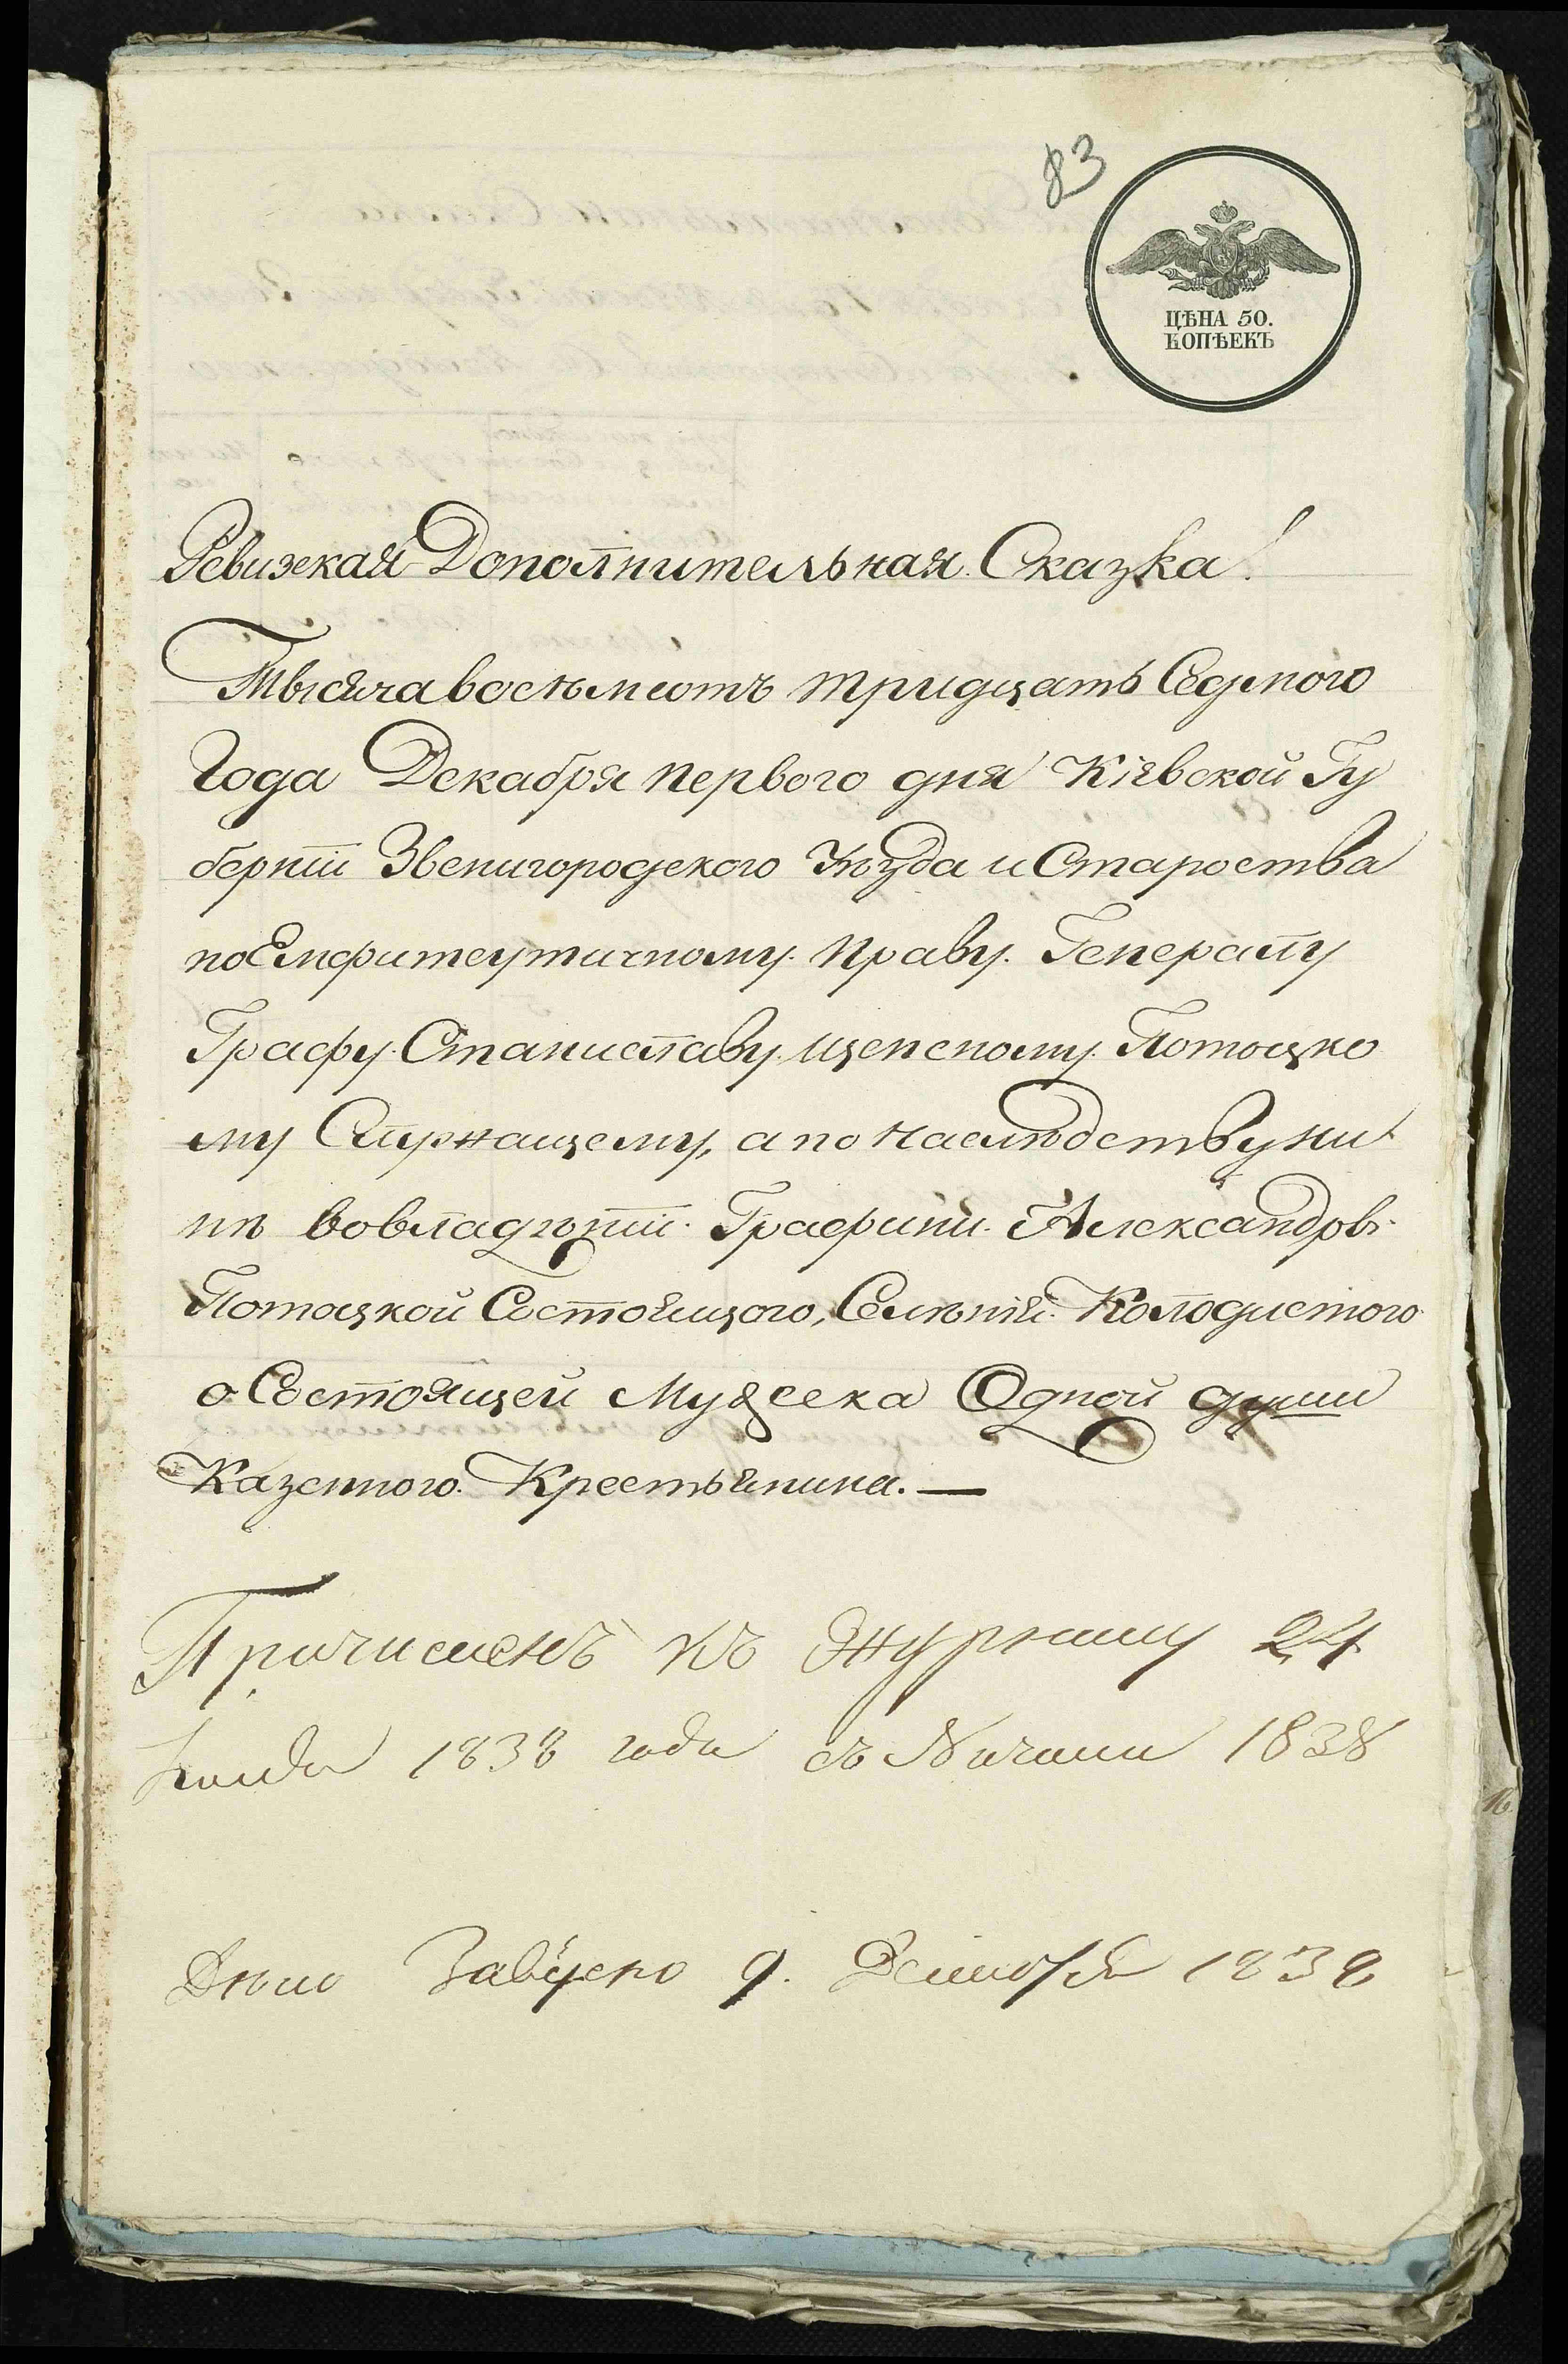 83
ЦѢНА 50.
КОПѢЕКЪ
Ревизская Дополнительная Сказка!
Тысяча восемьсотъ тридцать Седмого
Года Декабря первого дня Кіевской Гу
берніи Звенигородского Уѣзда и Староства
по Емфитеутичному праву Генералу
Графу Станиславу Щенсному Потоцко
му Служащему, а по наслѣдству ны
нѣ во владѣніи Графини Александры
Потоцкой Состоящого, Селѣнія Колодистого
о Состоящей Мужеска Одной души
Казенного Крестьянина. —
Причисленъ къ Журналу 24
1838 года съ Начала 1838
Дѣло 9. 1838